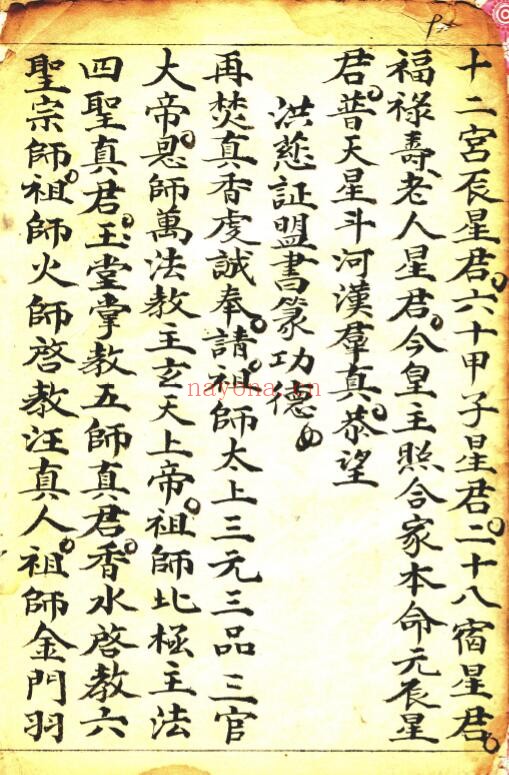 十二宮辰星君。六十甲子星君。二十八宿星君。
福祿壽老人星君。今皇主照合家本命元辰星
君。普天星斗河漢羣真。恭望
洪慈証盟書篆功德
再焚真香虔誠奉。請。祖師太上三元三品三官
大帝。恩師萬法教主玄天上帝。祖師北極主法
四聖真君。玉堂掌教五師真君。香水啓教六
聖宗師。祖師火師啓教汪真人。祖師金門羽
nayona.cn